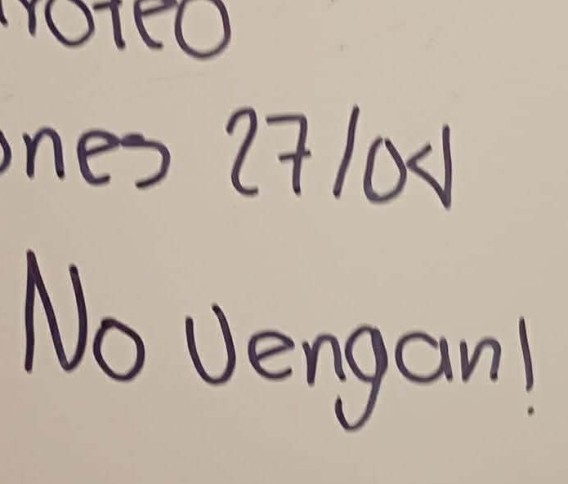 roteo
ones 27/04
No Vengan!